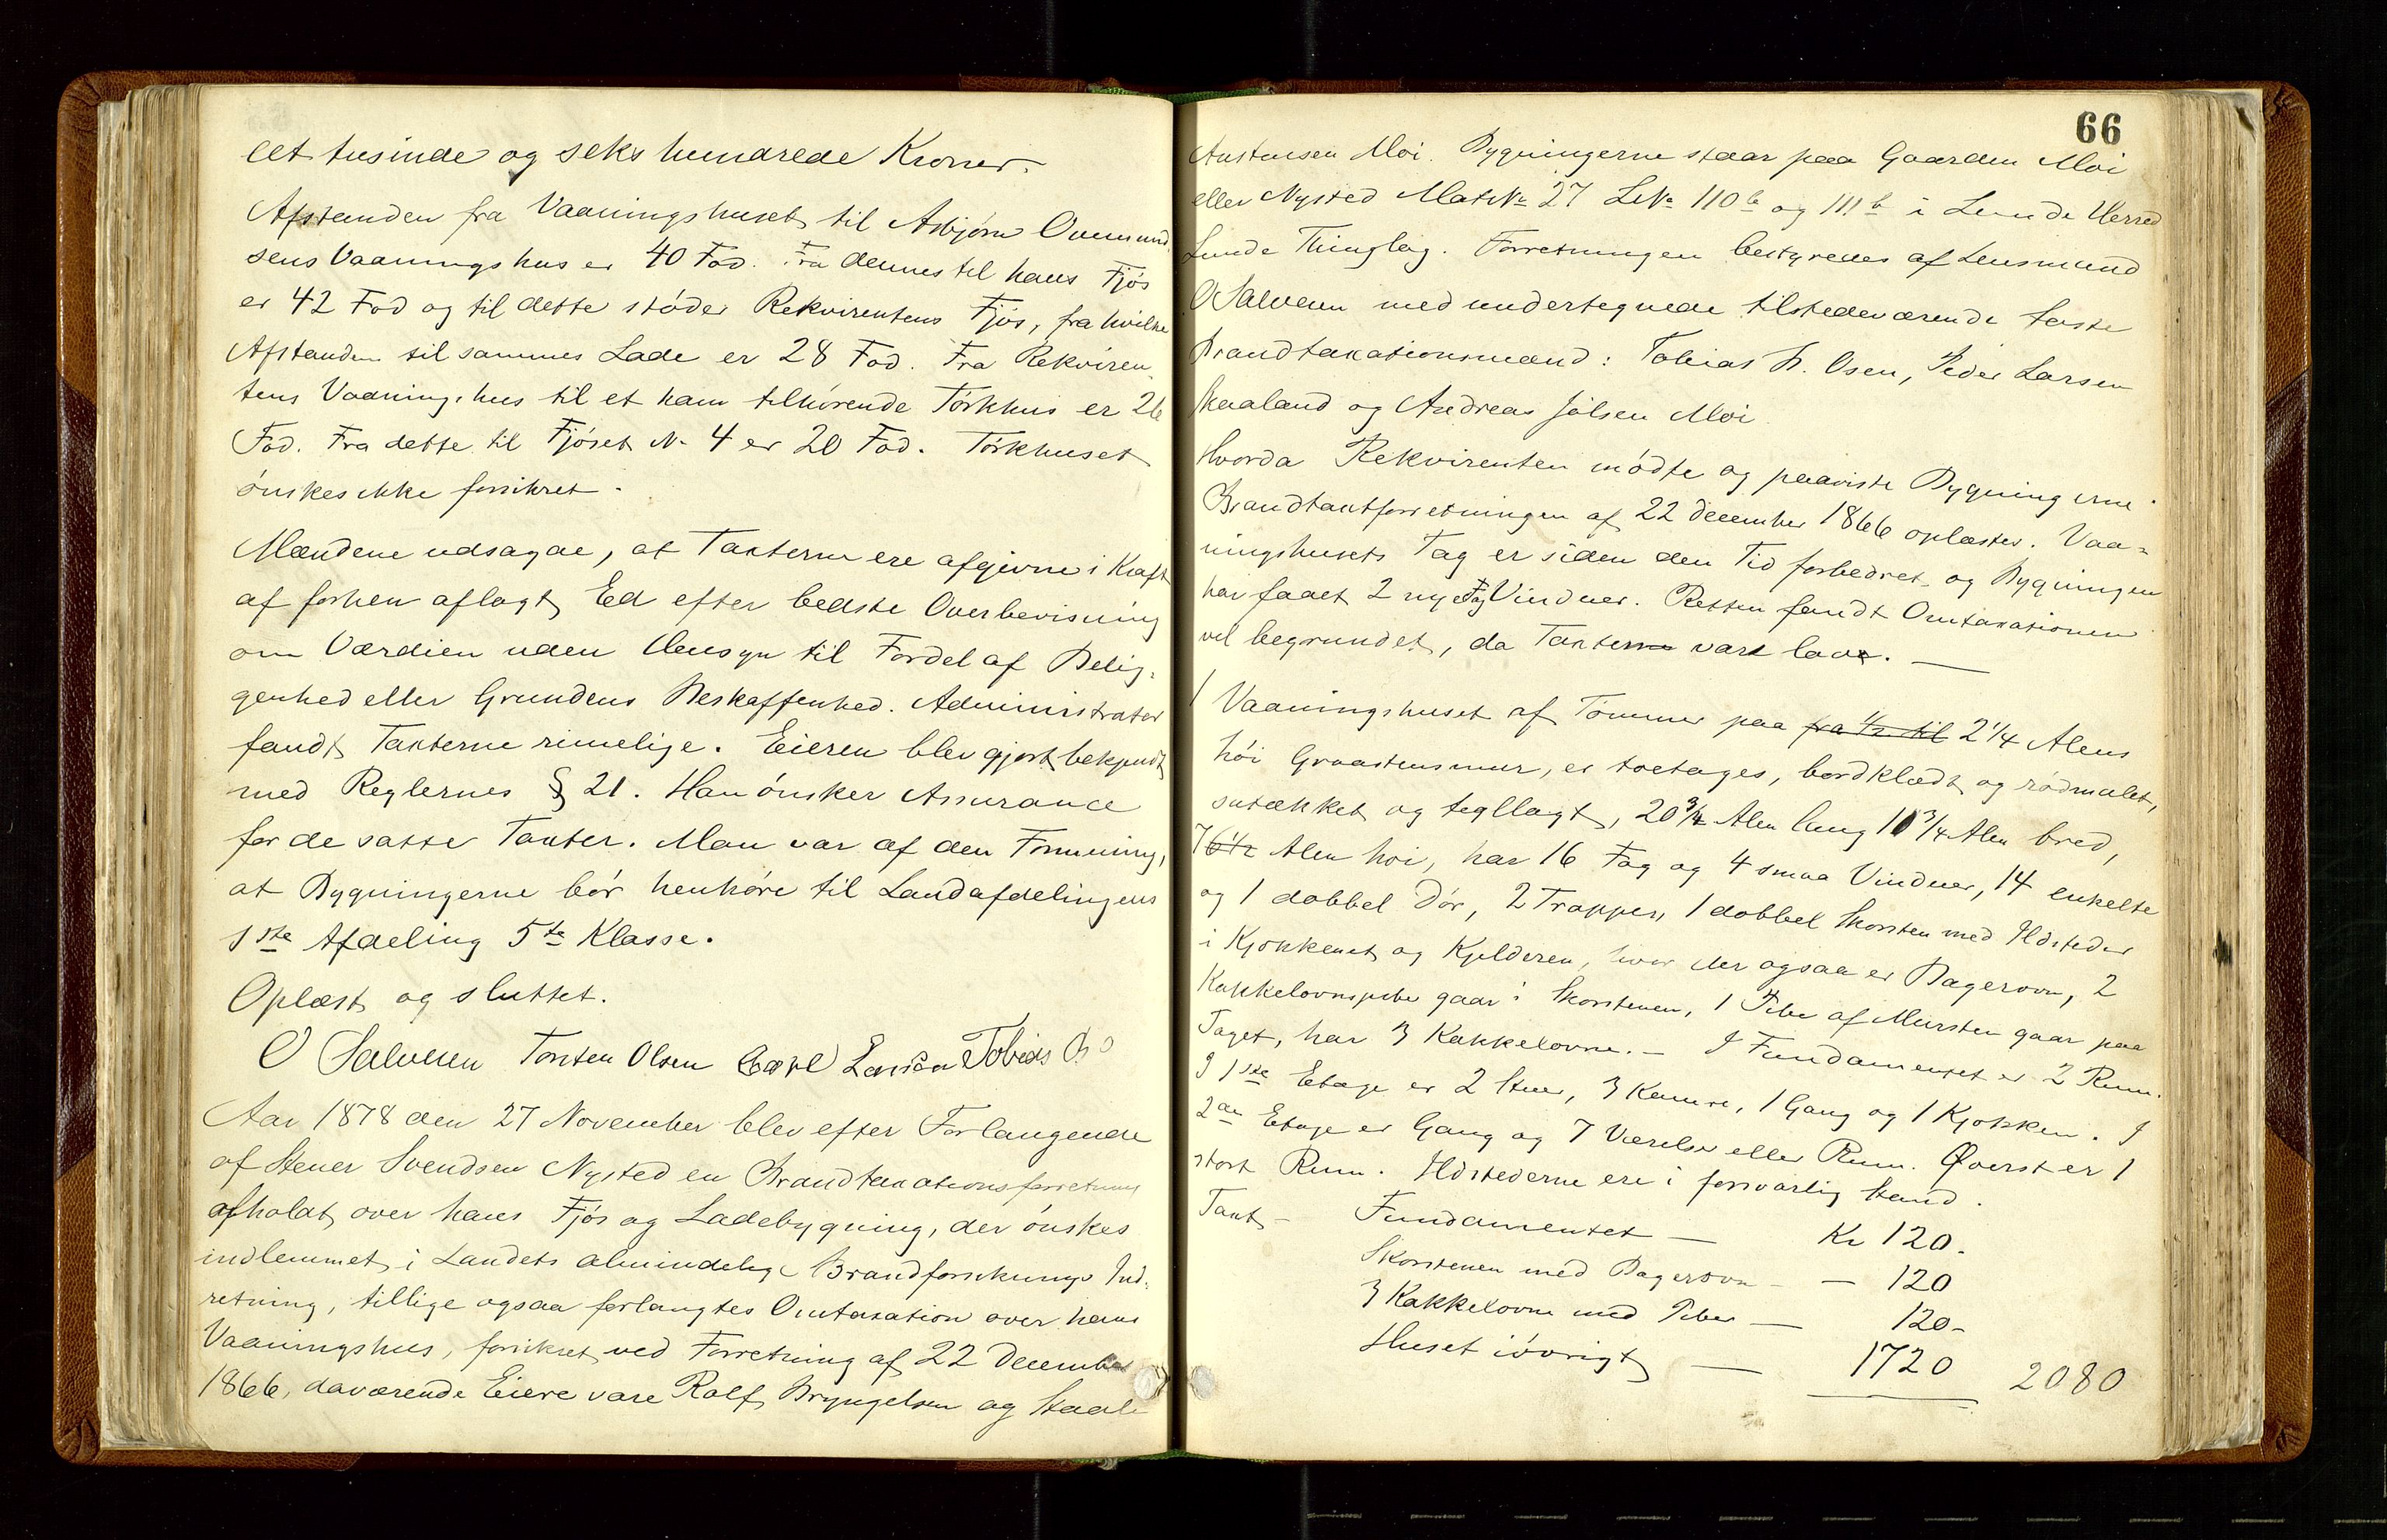 eet tusinde og seks hundrede Kroner.
Afstanden fra Vaaningshuset til Asbjørn Ovemund-
sens Vaaningshus er 40 Fod. Fra dennes til hans Fjös
er 42 Fod og til dette støder Rekvirentens Fjös, fra hvilke
Afstanden til sammes Lade er 28 Fod. Fra Rekviren-
tens Vaaningshus til et ham tilhörende Törkhus er 26
Fod. Fra dette til Fjöset N- 4 er 20 Fod. Törkhuset
önskes ikke forsikret.
Mændene udsagde, at Taxterne ere afgivne i Kraft
af forhen aflagt Ed efter bedste Overbevisning
om Værdien uden Hensyn til Fordel af Belig-
genhed eller Grundens Beskaffenhed. Administrator
fandt Taxterne rimelige. Eieren blev gjort bekjendt
med Reglernes § 21. Han önsker Assurance
for de satte Taxter. Man var af den Formening,
at Bygningerne bör henhöre til Landafdelingens
1ste Afdeling 5te Klasse.
Oplæst og sluttet.
O Salvesen Torsten Olsen Carl Larsen Tobias B O
Aar 1878 den 27 November blev efter Forlangende
af Stener Svendsen Nysted en Brandtaxationsforretning
afholdt over hans Fjös og Ladebygning, der önskes
indlemmet i Landets almindelige Brandforsikrings Ind-
retning, tillige ogsaa forlangtes Omtaxation over hans
Vaaningshus, forsikret ved Forretning af 22 December
1866, daværende Eiere vare Rolf Bryngelsen og Staale
66
Austensen Moi. Bygningerne staar paa Gaarden Moi
eller Nysted Mat№ 27 L№ 110b og 111b i Lunde Herred
Lunde Thinglag. Forretningen bestyredes af Lensmand
O Salvesen med undertegnede tilstedeværende faste
Brandtaxationsmænd: Tobias B. Osen, Peder Larsen
Skaaland og Andreas Jölsen Moi
Hvorda Rekvirenten mödte og paaviste Bygningerne.
Brandtaxtforretningen af 22 December 1866 oplæstes. Vaa-
ningshusets Tag er siden den Tid forbedret og Bygningen
har faaet 2 nye Fag Vinduer. Retten fandt Omtaxationen
vel begrundet, da Taxterne vare lave.
1 Vaaningshuset af Tömmer paa fra 1/2 til 2 1/4 Alens
höi Graastensmur, er toetages, bordklædt og rödmalet,
sutækket og tegllagt, 20 3/4 Alen lang 10 3/4 Alen bred,
7 6 1/2 Alen höi, har 16 Fag og 4 smaa Vinduer, 14 enkelte
og 1 dobbel Dör, 2 Trapper, 1 dobbel Skorsten med Ildsteder
i Kjökkenet og Kjelderen, hvor der ogsaa er Bagerovn, 2
Kakkelovnspiber gaar i Skorstenen, 1 Pibe af Mursten gaar paa
Taget, har 3 Kakkelovne. – I Fundamentet er 2 Rum.
I 1ste Etage er 2 Stuer, 3 Kamre, 1 Gang og 1 Kjökken. I
2den Etage er Gang og 7 Værelse eller Rum. Øverst er 1
stort Rum. Ildstederne ere i forsvarlig Stand.
Taxt – Fundamentet — Kr 120.
Skorstenen med Bagerovn – — 120
3 Kakkelovne med Piber — 120-
Huset iövrigt — 1720 2080